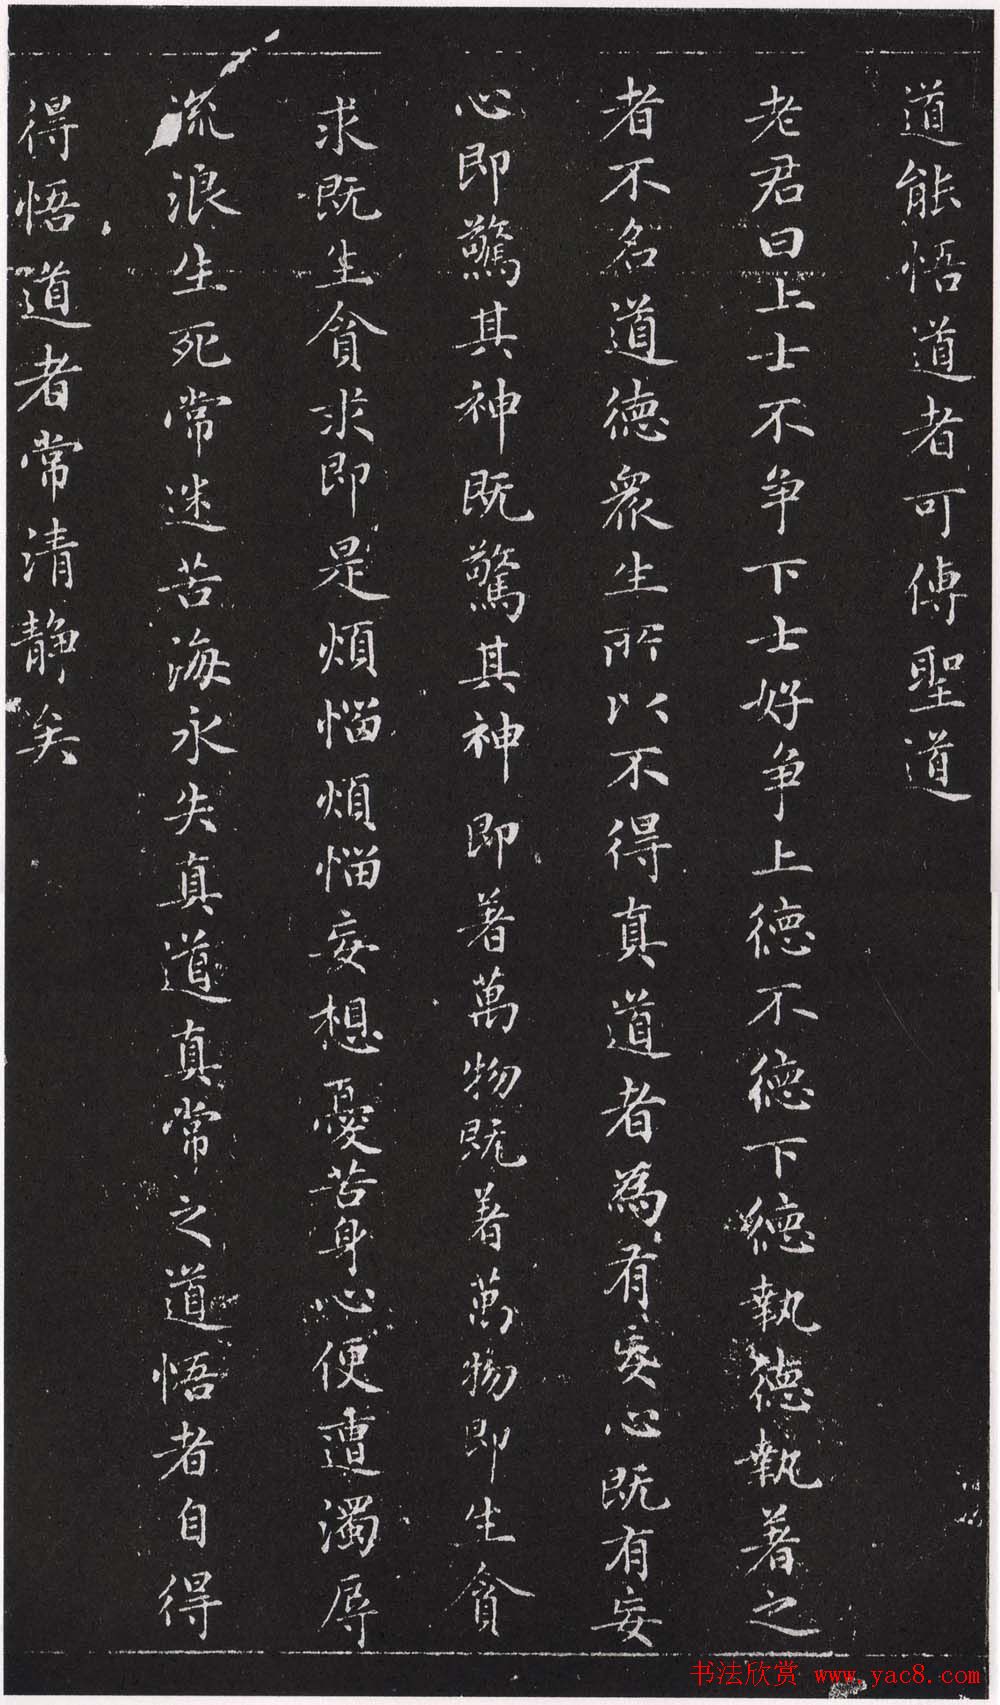 道能悟道者可傳聖道
老君曰上士不争下士好争上德不德下德執德執著之
者不名道德衆生所以不得真道者為有妄心既有妄
心即驚其神既驚其神即著萬物既著萬物即生貪
求既生貪求即是煩惱煩惱妄想憂苦身心便遭濁辱
流浪生死常迷苦海永失真道真常之道悟者自得
得悟道者常清静矣
书法欣赏 www.yac8.com